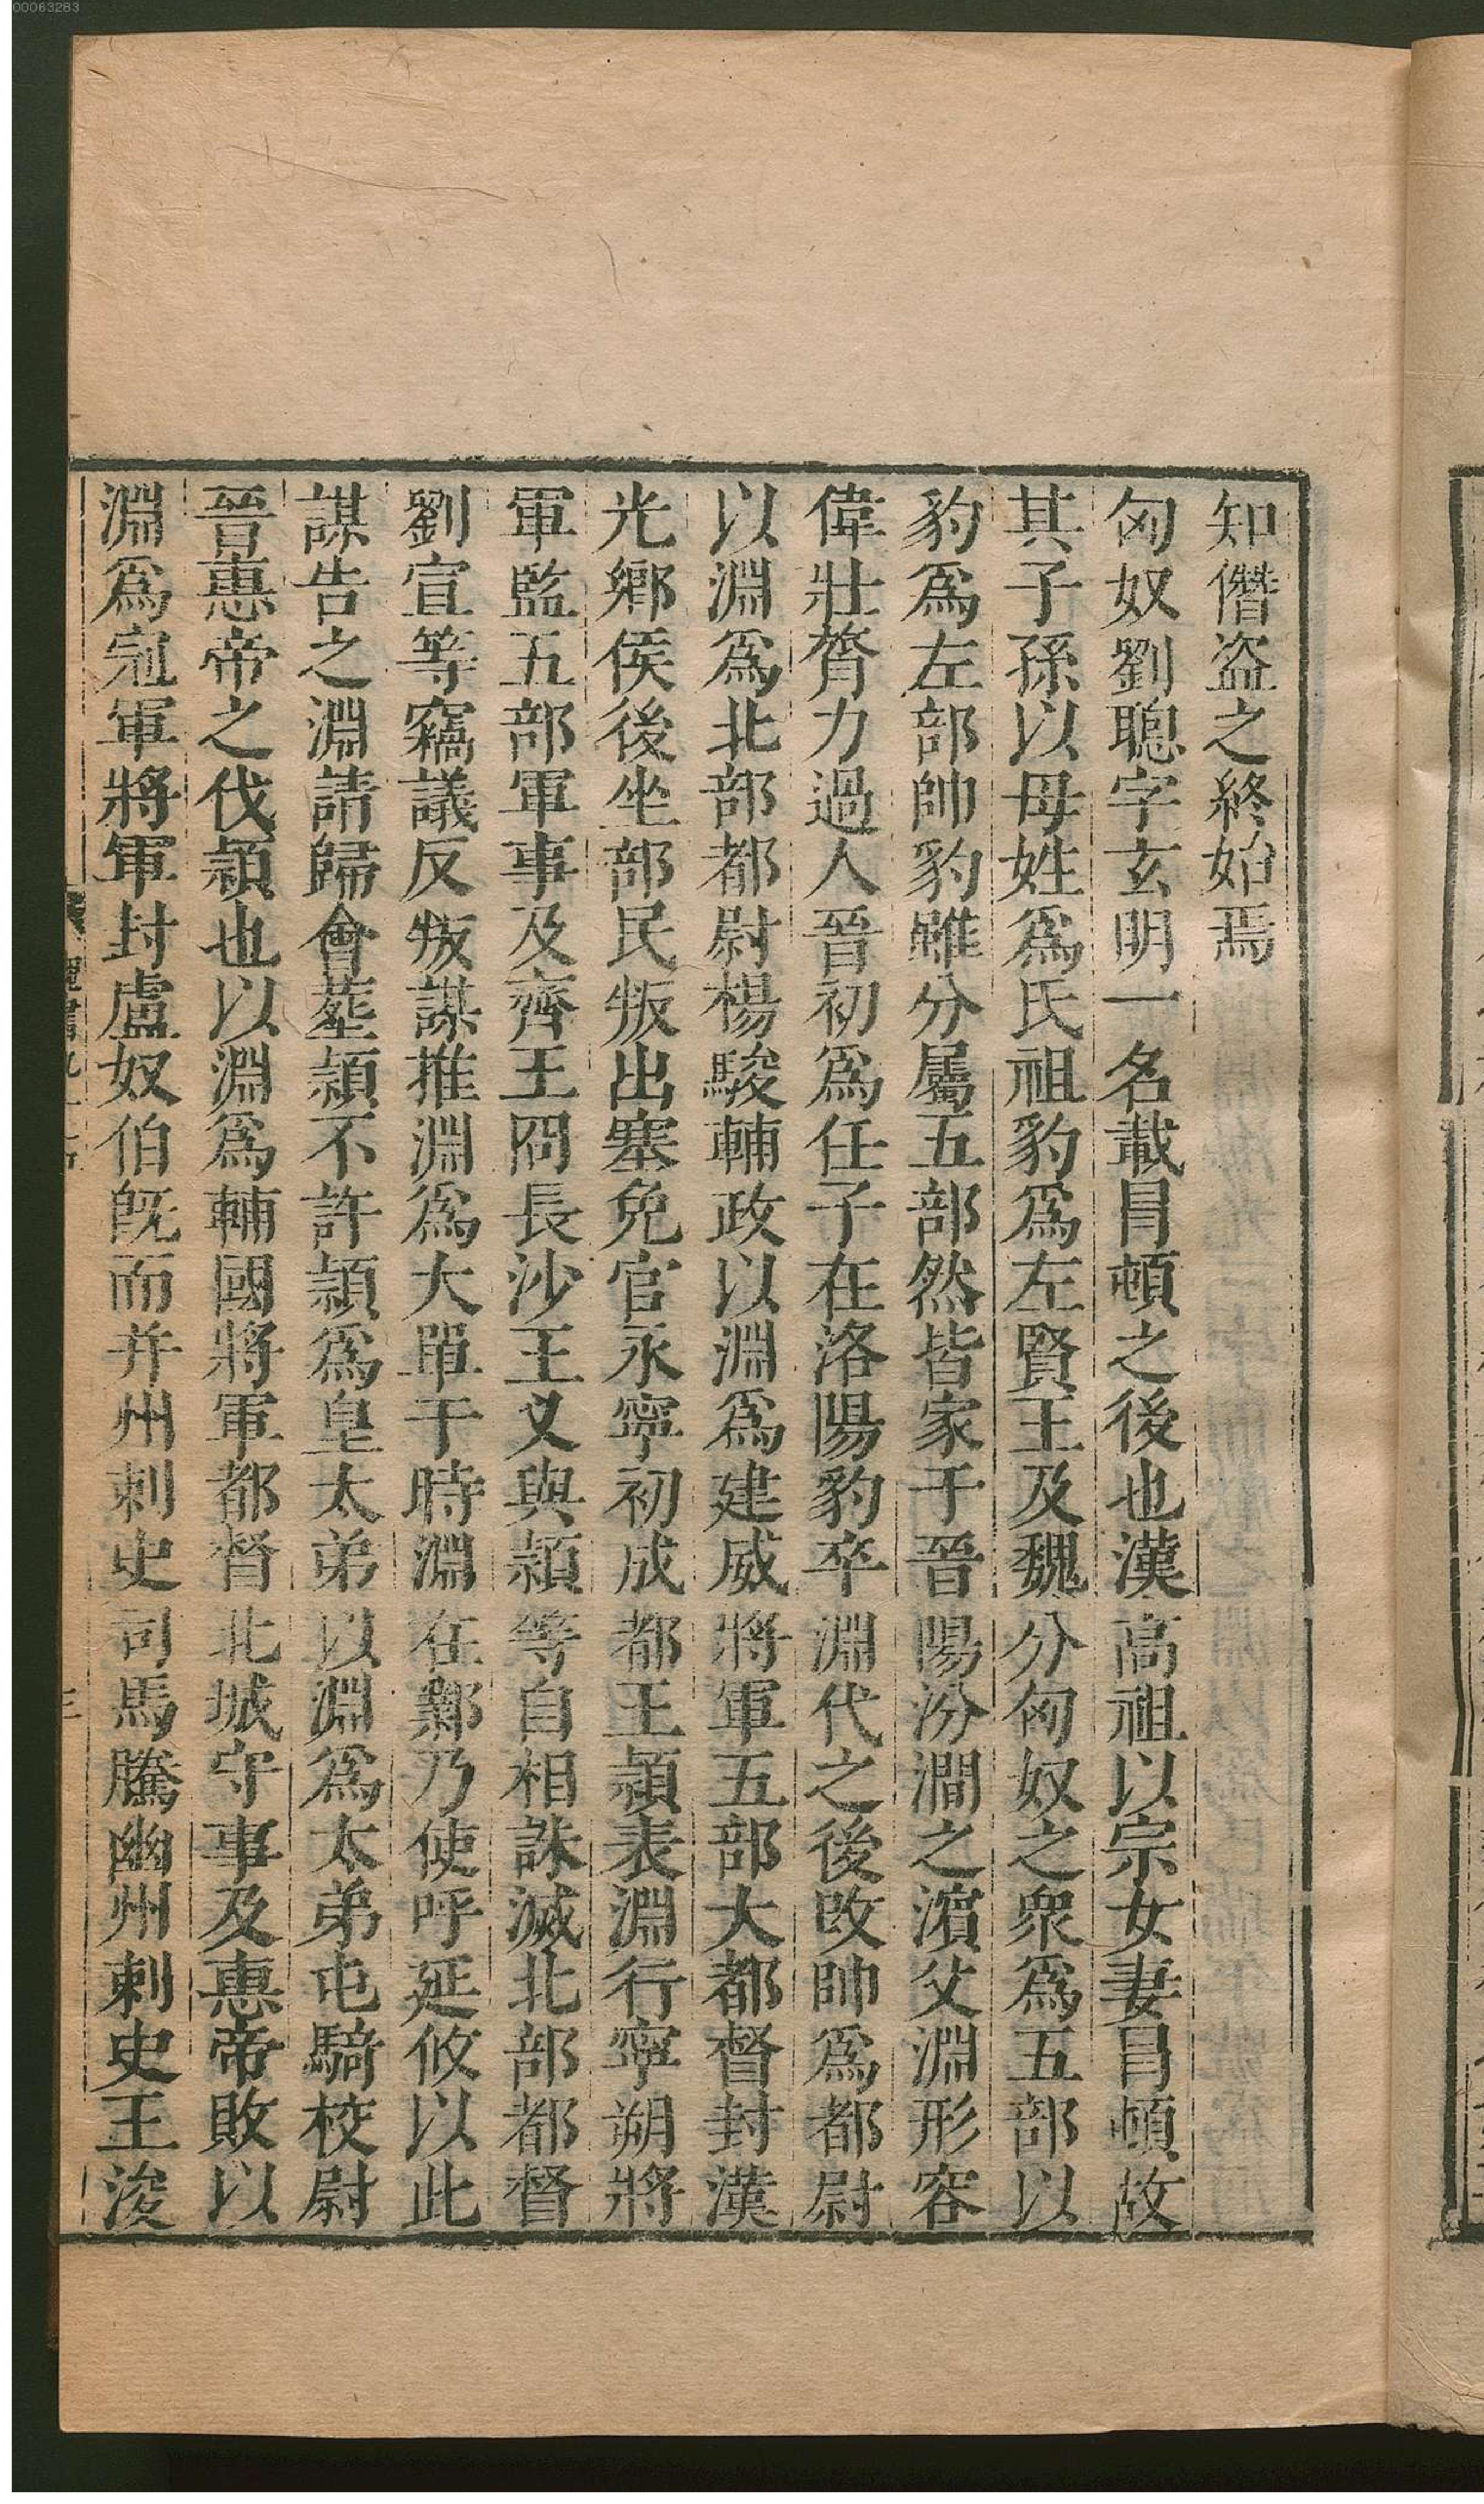 00063283
知僭盗之終始焉
匈奴劉聰字玄明一名載冒頓之後也漢高祖以宗女妻冒頓故
其子孫以母姓爲氏祖豹爲左賢王及魏分匈奴之衆爲五部以
豹爲左部帥豹雖分屬五部然皆家于晉陽汾澗之濵父淵形容
偉壯膂力過人晉初爲任子在洛陽豹卒淵代之後改帥爲都尉
以淵爲北部都尉楊駿輔政以淵爲建威將軍五部大都督封漢
光鄉侯後坐部民叛出塞免官永寧初成都王頴表淵行寧朔將
軍監五部軍事及齊王冏長沙王乂與頴等自相誅滅北部都督
劉宣等竊議反叛謀推淵爲大單于時淵在鄴乃使呼延攸以此
謀告之淵請歸會葬頴不許頴爲皇太弟以淵爲太弟屯騎校尉
晉惠帝之伐頴也以淵爲輔國將軍都督北城守事及惠帝敗以
淵爲冠軍將軍封盧奴伯旣而并州刺史司馬騰幽州刺史王浚